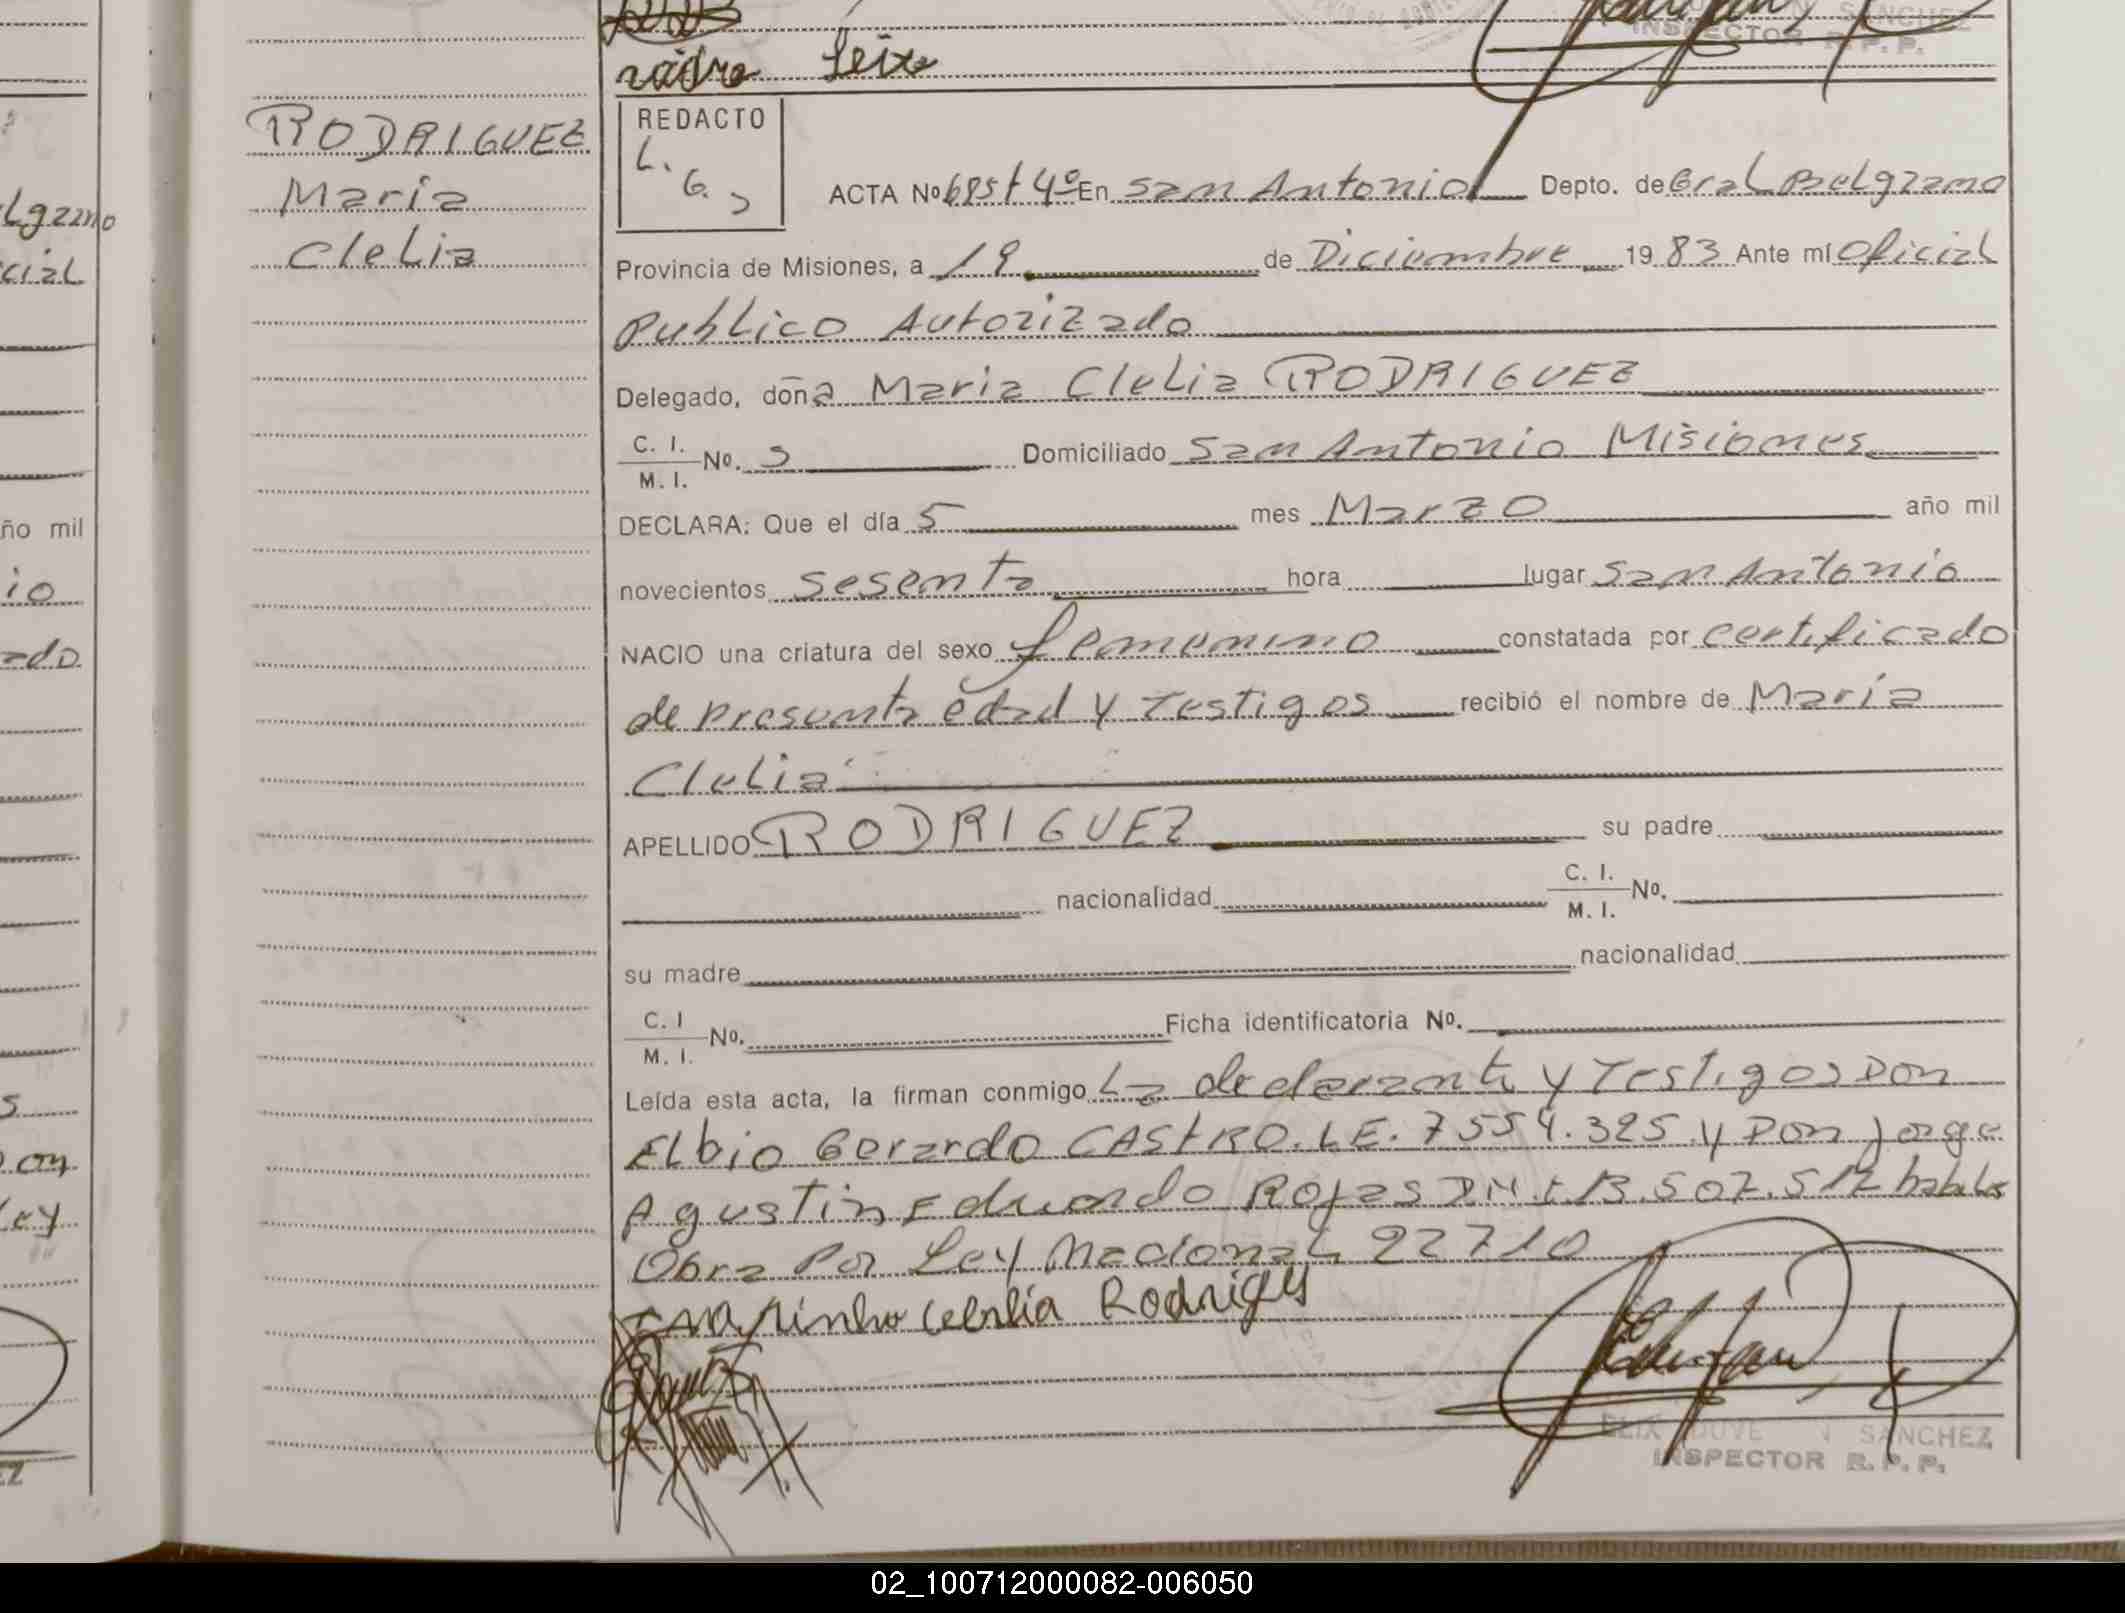 madre Leixe
RODRIGUEZ
Maria
Clelia
REDACTO
L.
G.
ACTA Nº 685 t 4º En San Antonio Depto. de Gral Belgrano
Provincia de Misiones, a 19 de Diciembre 1983 Ante mí Oficial
Publico Autorizado
Delegado, doña Maria Clelia RODRIGUEZ
C. I.
M. I. Nº. Domiciliado San Antonio Misiones
DECLARA: Que el día 5 mes Marzo año mil
novecientos sesenta hora lugar San Antonio
NACIO una criatura del sexo femenino constatada por certificado
de presunta edad y Testigos recibió el nombre de María
Clelia
APELLIDO RODRIGUEZ su padre
nacionalidad C. I.
M. I. Nº.
su madre nacionalidad
C. I
M. I. Nº. Ficha identificatoria Nº.
Leída esta acta, la firman conmigo La declarante y Testigos Don
Elbio Gerardo CASTRO. L.E. 7554.325 y Don Jorge
Agustin Eduardo Rojas DN.I. 13.507.512 habiles
Obra Por Ley Nacional 22710
Rodrigues
SANCHEZ
INSPECTOR R. P. P.
lgrano
cial
ño mil
io
ado
s
on
ey
SANCHEZ
INSPECTOR R. P. P.
02_100712000082-006050